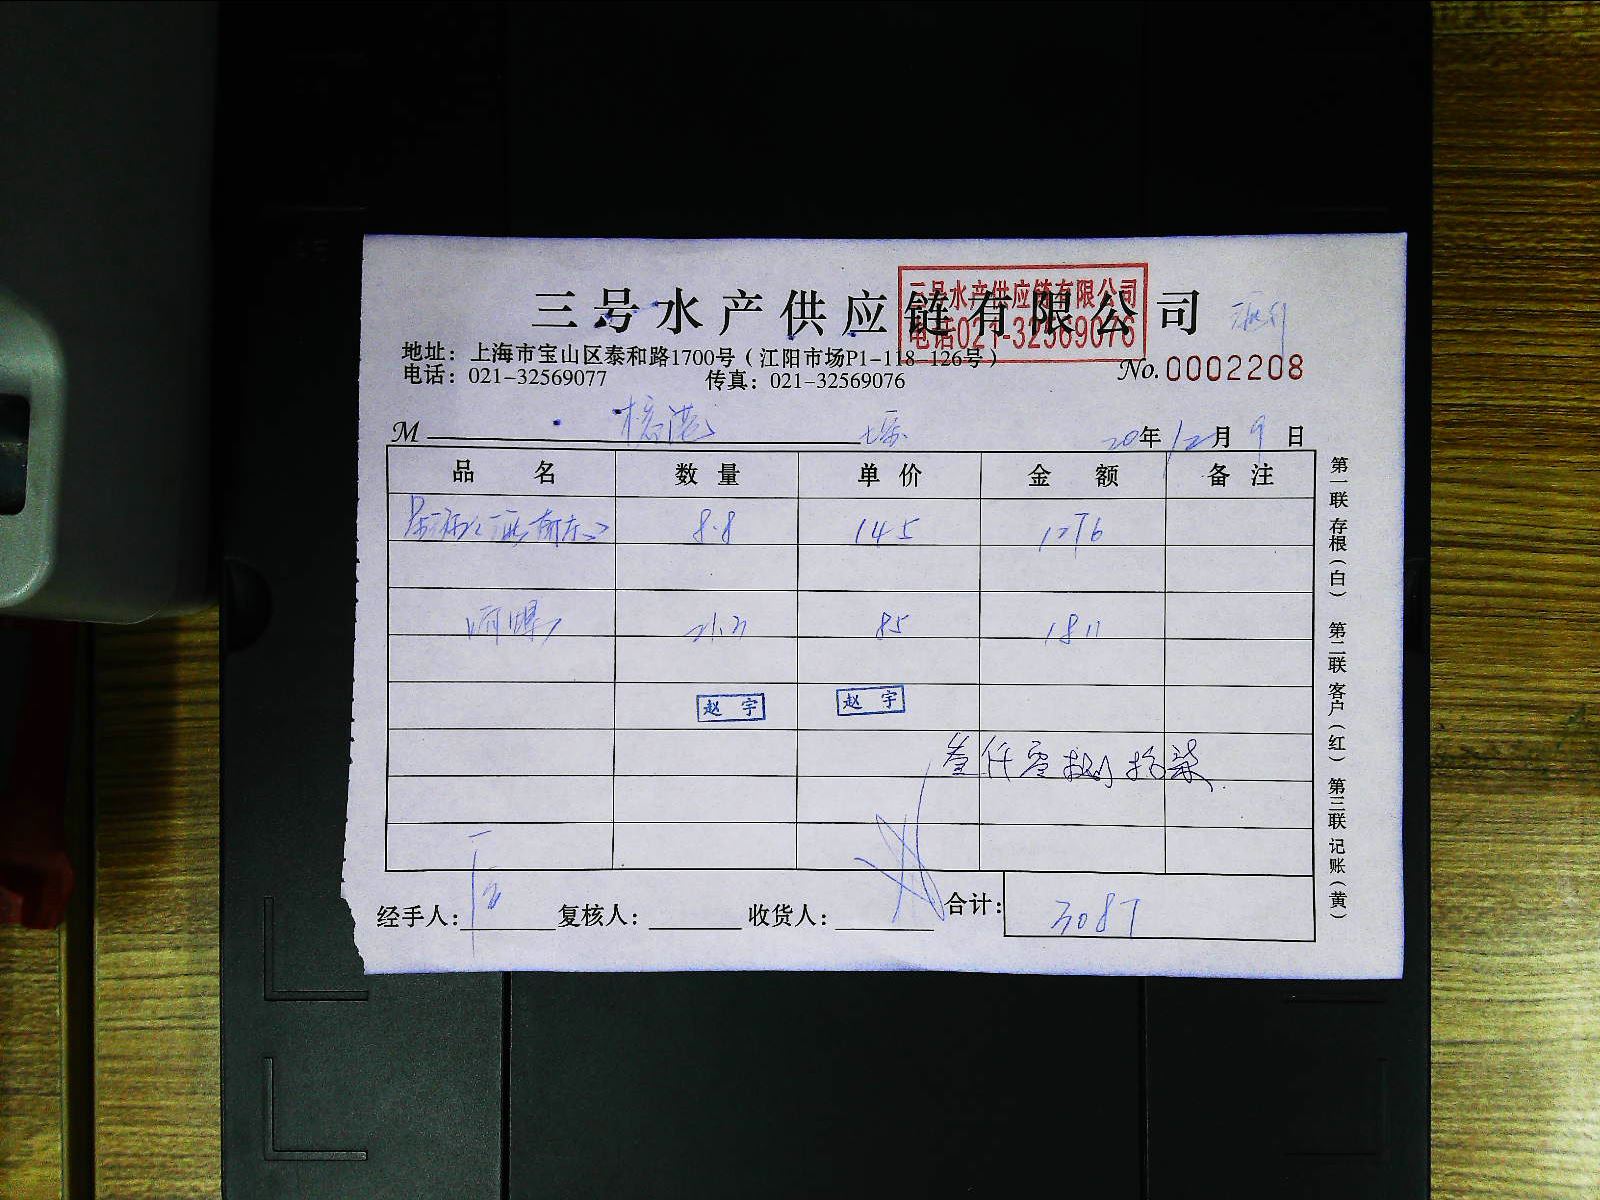 三号水产供应链有限公司
三号水产供应链有限公司
电话021-32569076
地址：上海市宝山区泰和路1700号（江阳市场P1-118-126号）
No.0002208
电话：021-32569077 传真：021-32569076
M 20年12月9日
品名 数量 单价 金额 备注
8.8 145 1276
21.3 85 1811
赵宇 赵宇
叁仟零捌拾柒
经手人： 复核人： 收货人： 合计：3087
第一联 存根（白） 第二联 客户（红） 第三联 记账（黄）